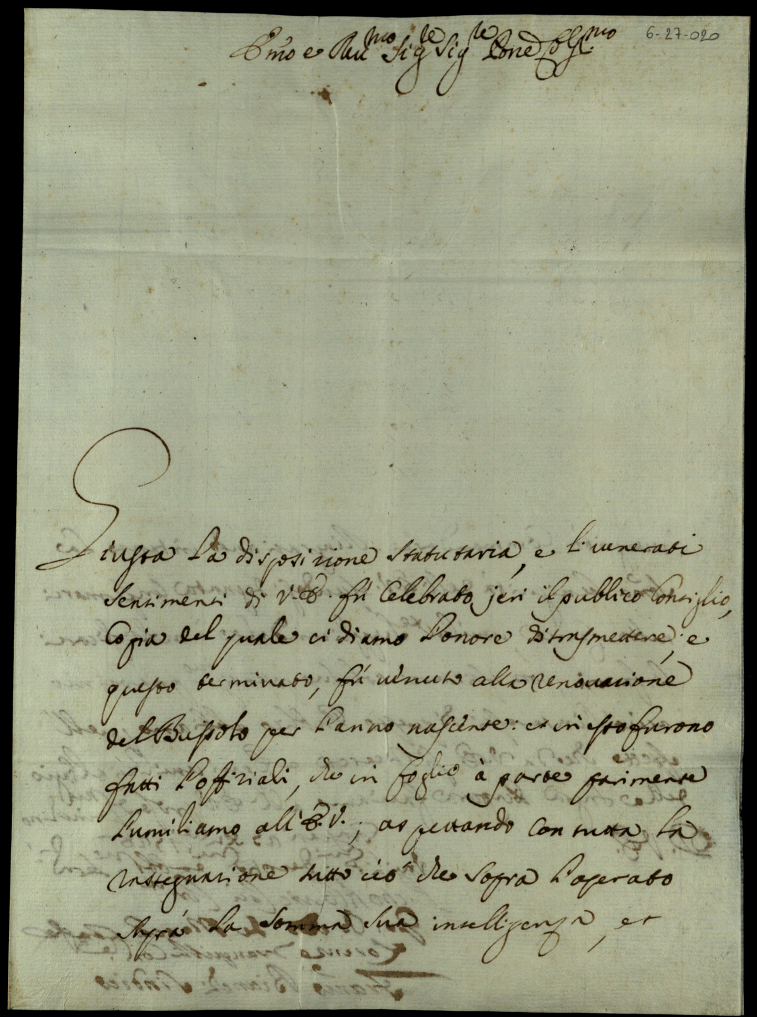 6-27-020
Emo e Rmo Sigre Sigre Pone Colmo
Giusta la disposizione statutaria, e l'venerati
sentimenti di V. E. fù Celebrato jeri il publico Consiglio,
Copia del quale ci diamo l'onore di trasmettere; e
questo terminato, fù venuto alla renovazione
del Bussolo per l'anno nascente: et in esso furono
fatti l'offiziali, che in foglio à parte parimente
l'umiliamo all'E. V.; aspettando con tutta la
rassegnazione tutto ciò che sopra l'operato
saprà la somma sua intelligenza, et